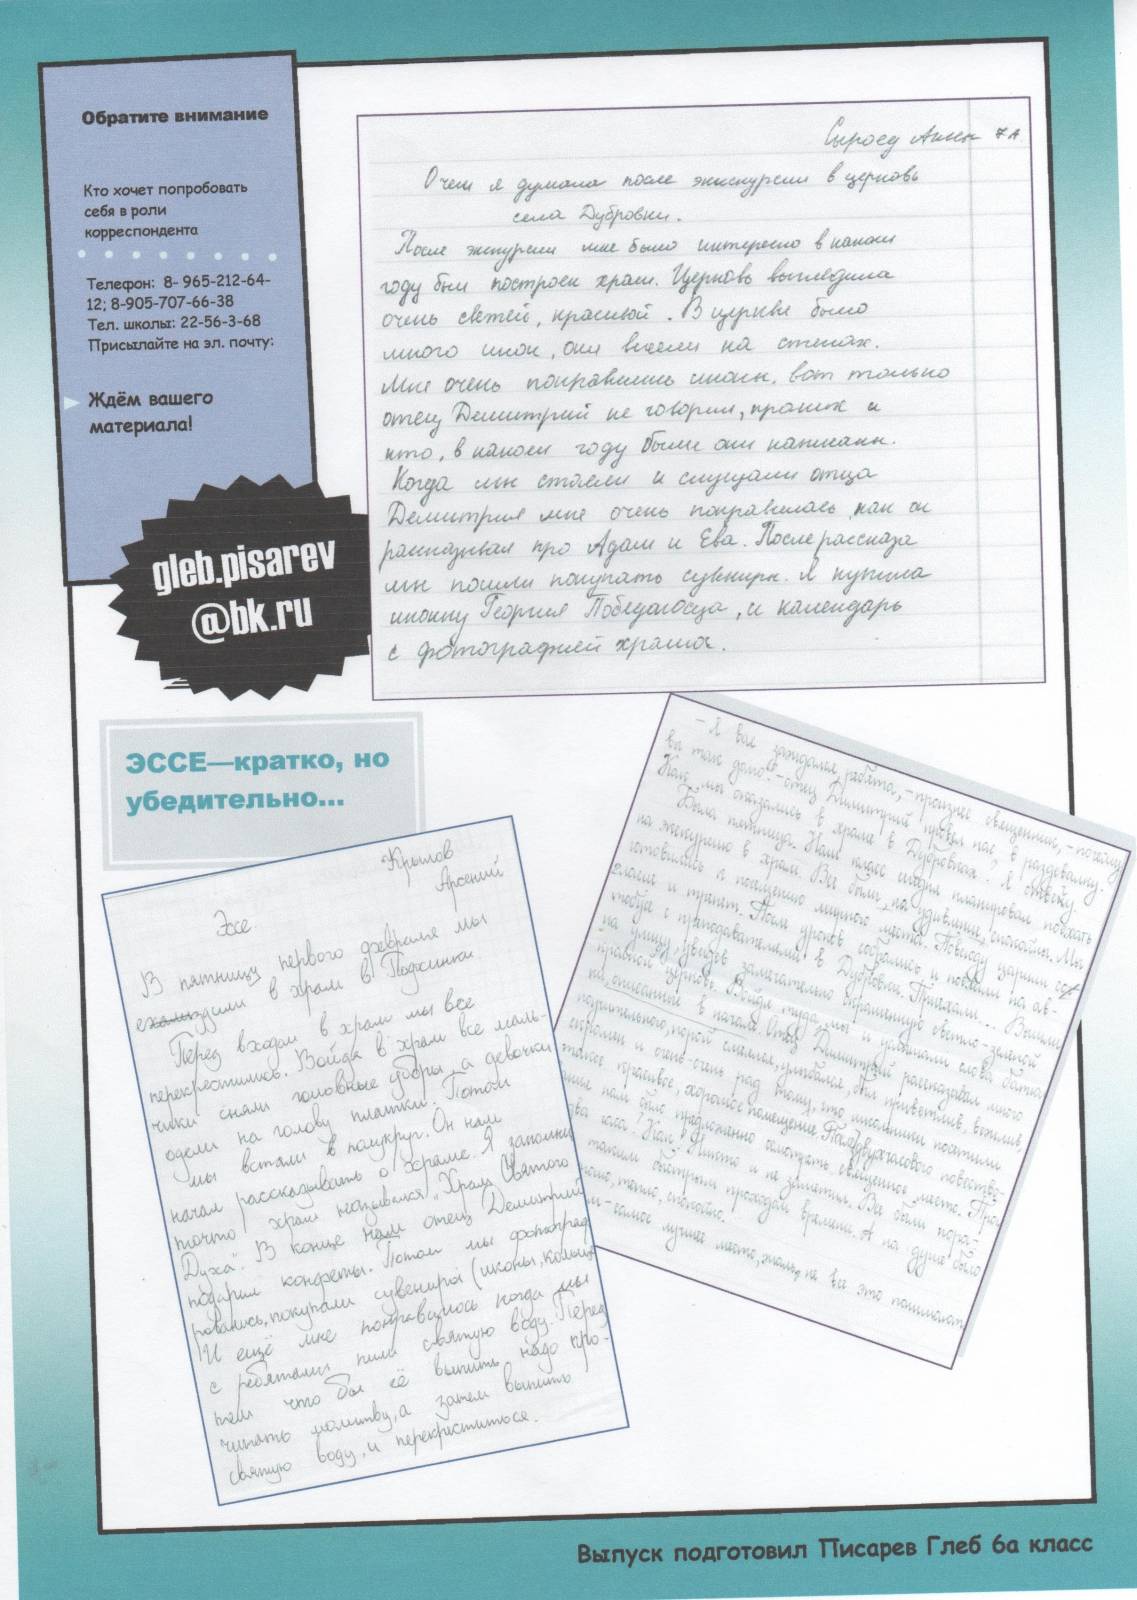 Обратите внимание
Кто хочет попробовать
себя в роли
корреспондента
Телефон: 8- 965-212-64-
12; 8-905-707-66-38
Тел. школы: 22-56-3-68
Присылайте на эл. почту:
Ждём вашего
материала!
gleb.pisarev
@bk.ru
Сыроед Анны 7А
О чем я думала после экскурсии в церковь
села Дубровки.
После экскурсии мне было интересно в каком
году был построен храм. Церковь выглядила
очень светлой, красивой. В церкве было
много икон, они висели на стенах.
Мне очень понравились иконы, вот только
отец Демитрий не говорил, кто, в каком году были они написаны.
Когда мы стояли и слушали отца
Демитрия мне очень понравилась, как он
рассказывал про Адам и Ева. После рассказа
мы пошли покупать сувениры. Я купила
иконку Георгия Победоносца, и календарь
с фотографией храма.
ЭССЕ—кратко, но
убедительно...
Крылов
Арсений
Эссе.
В пятницу первого февраля мы
ездили в храм в
Перед входом в храм мы все
перекрестились. Войдя в храм все маль-
чики сняли головные уборы, а девочки
одели на голову платки. Потом
мы встали в полукруг. Он нам
начал рассказывать о храме. Я запомнил
то что храм назывался „Храм Святого
Духа". В конце нам отец Демитрий
подарил конфеты. Потом мы фотограф
ровались, покупали сувениры (иконы, кольца
И ещё мне понравилось когда мы
с ребятами пили святую воду. Перед
тем что бы её выпить надо про-
читать молитву, а затем выпить
святую воду, и перекреститься.
– Я вас заждался, ребята, – произнес священник, – почему
вы так долго? – отец Димитрий провел нас в раздевалку.
Как мы оказались в храме в Дубровках? Я отвечу.
Была пятница. Наш класс планировал поехать
на экскурсию в храм. Все были, на удивление, спокойны. Мы
готовились к посещению мирного места. Повсюду царили
и трепет. После уроков собрались и поехали на ав-
тобусе с преподавателями в Дубровки. Приехали... Вышли
на улицу, увидев замечательно окрашенную светло-зеленой
церковь. Войдя туда, мы и услышали слова батюшки
описанные в начале. Отец Димитрий рассказывал много
поучительного, порой смеялся, улыбался, был приветлив, вежлив,
и очень-очень рад тому, что школьники посетили
такое красивое, хорошее помещение. После двухчасового повество-
вания нам было предложено осмотреть священное место. Прошло
два часа? Как? Никто и не заметил. Все были пора-
таким быстрым проходом времени. А на душе было
тепло, спокойно.
самое лучшее место, жаль, не все это понимают
Выпуск подготовил Писарев Глеб 6а класс